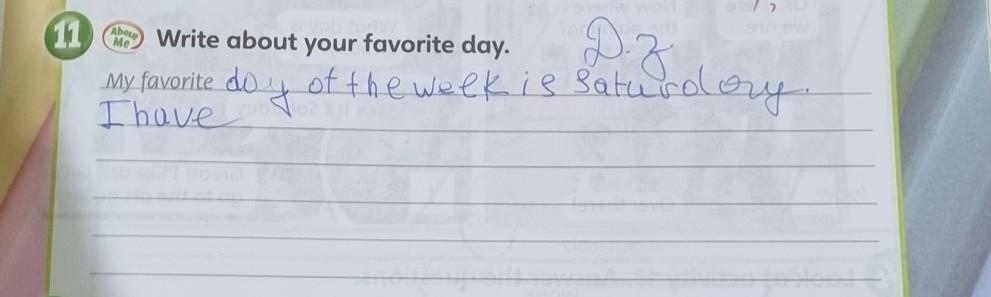 11 About Me Write about your favorite day. D.z
My favorite day of the week is Saturday.
I have